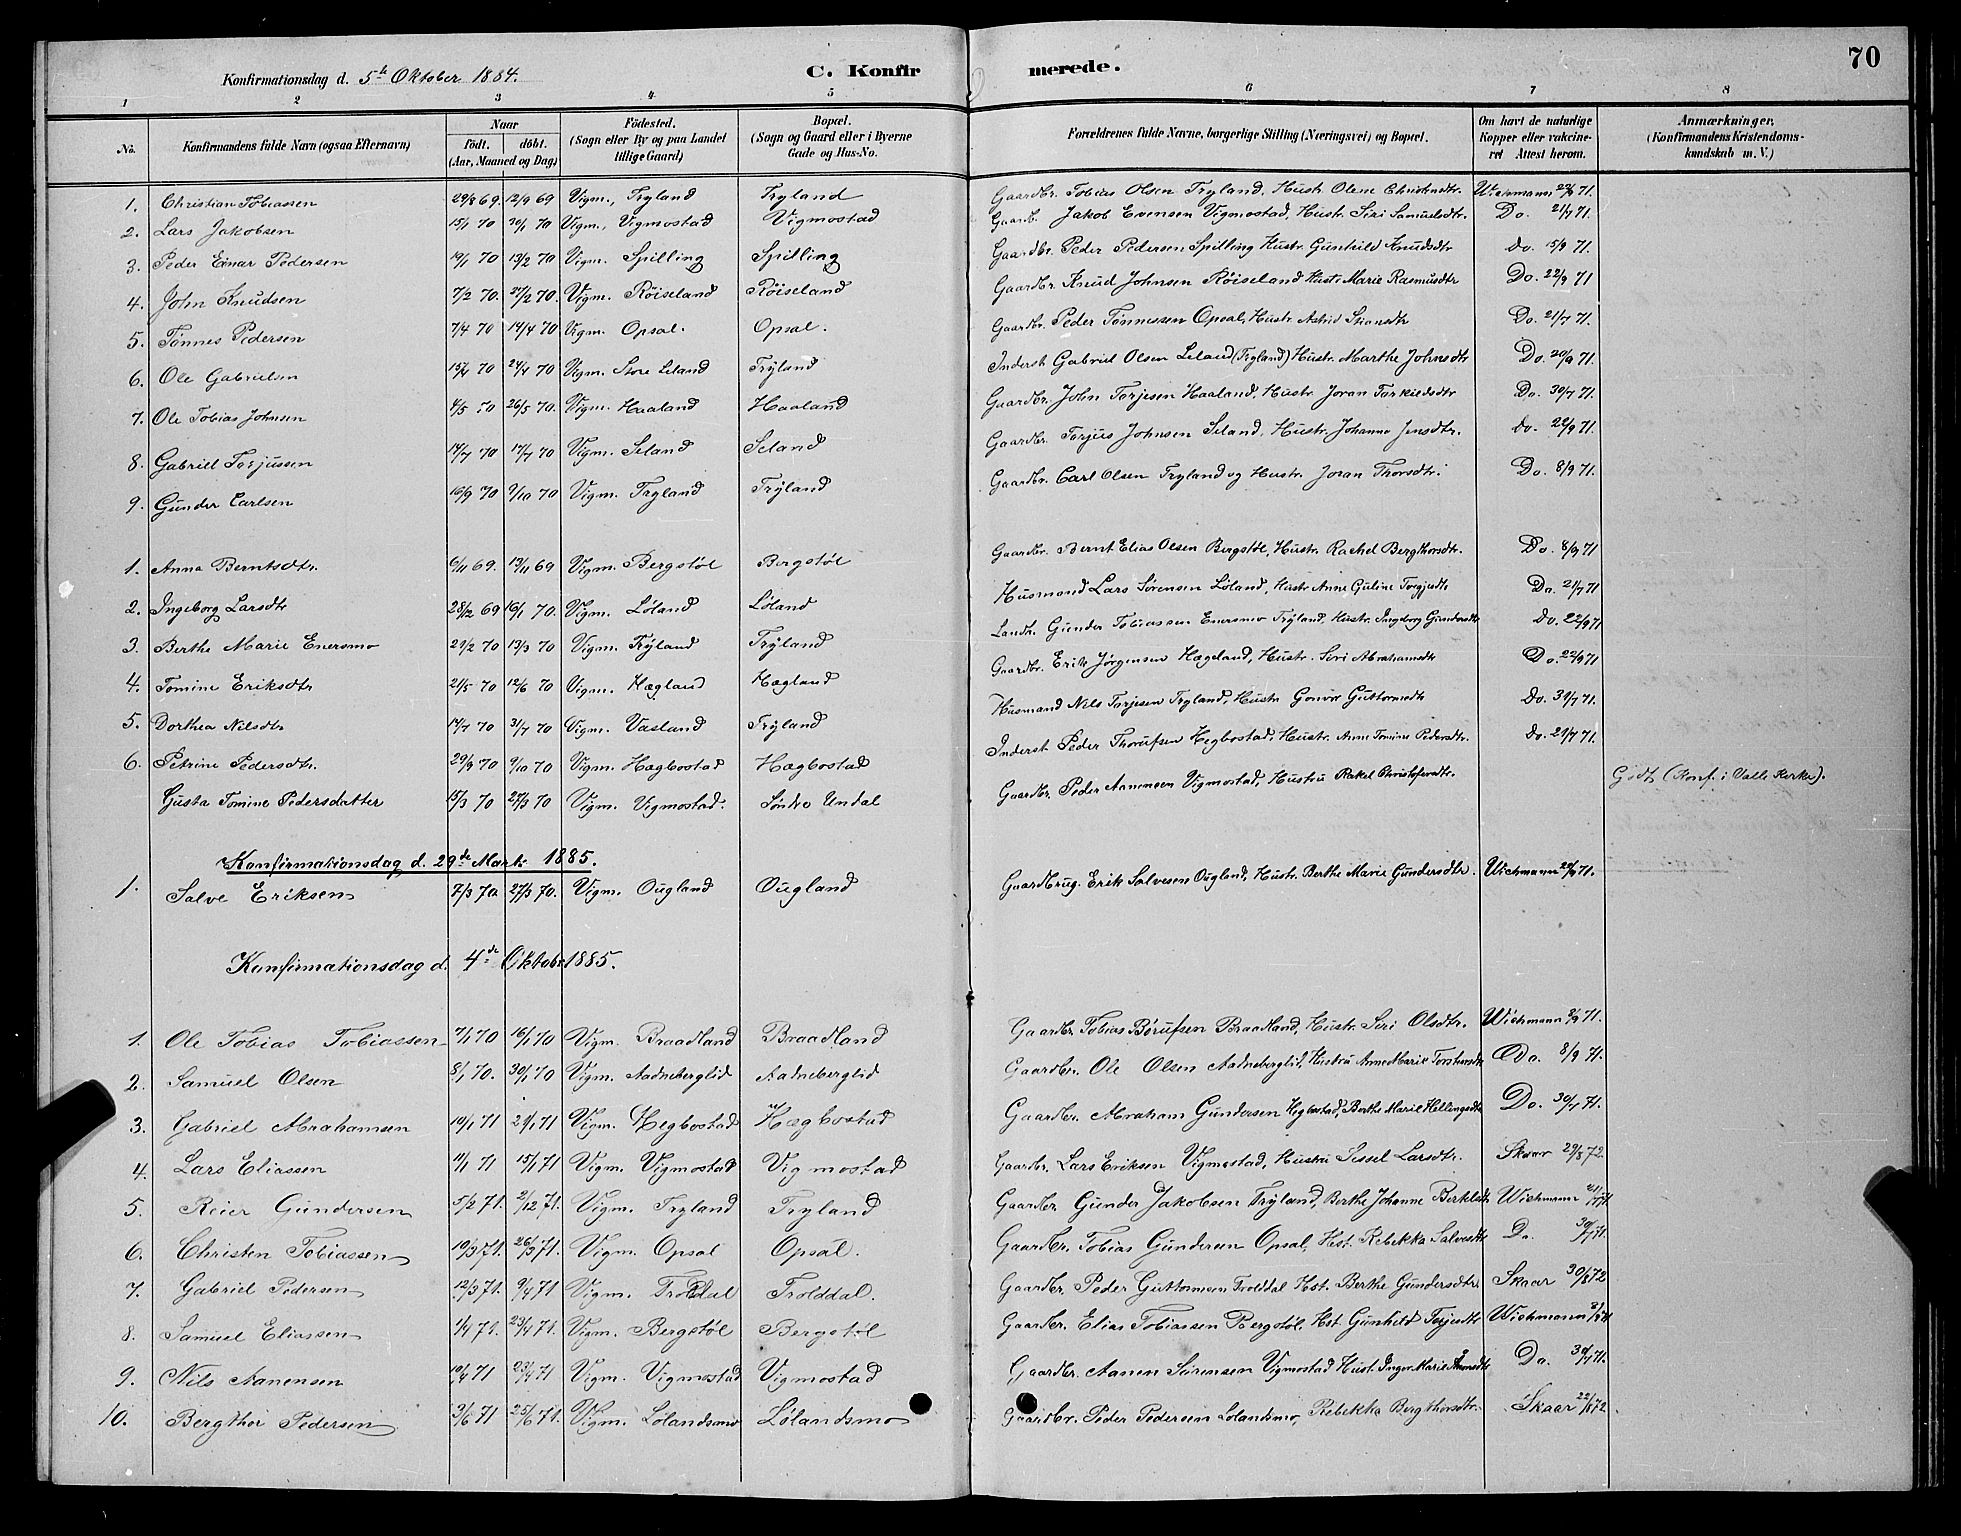 70
Konfirmationsdag d. 5te Oktober 1884.
C. Konfirmerede.
1 2 3 4 5 6 7 8
No. Konfirmandens fulde Navn (ogsaa Efternavn) Naar födt. döbt. (Aar, Maaned og Dag) Födested. (Sogn eller By og paa Landet tillige Gaard) Bopæl. (Sogn og Gaard eller i Byerne Gade og Hus-No. Forældrenes fulde Navne, borgerlige Stilling (Næringsvei) og Bopæl. Om havt de naturlige Kopper eller vakcineret Attest herom. Anmærkninger, (Konfirmandens Kristendomskundskab m. V.)
1. Christian Tobiassen 29/8 69. 12/9 69 Vigm., Tryland Tryland Gaardbr. Tobias Olsen Tryland, Hustr. Olene Christensdtr. Wichmann 22/9 71.
2. Lars Jakobsen 15/1 70 30/1 70 Vigm., Vigmostad Vigmostad Gaardb. Jakob Evensen Vigmostad, Hustr. Siri Samuelsdtr. Do. 21/7 71.
3. Peder Einar Pedersen 19/1 70 13/2 70 Vigm. Spilling Spilling Gaardbr. Peder Pedersen Spilling Hustr. Gunhild Knudsdtr Do. 15/9 71.
4. John Knudsen 7/2 70. 27/2 70. Vigm. Röiseland Röiseland Gaardbr. Knud Johnsen Röiseland Hust. Marie Rasmusdtr Do. 22/9 71
5. Tönnes Pedersen 7/4 70 14/4 70 Vigm. Opsal. Opsal. Gaardbr. Peder Tönnessen Opsal, Hustr. Astrid Do. 21/7 71.
6. Ole Gabrielsen 15/4 70 24/4 70 Vigm. Store Leland Tryland Inderst Gabriel Olsen Leland (Tryland) Hustr. Marthe Johnsdtr Do. 20/9 71.
7. Ole Tobias Johnsen 4/5 70 26/5 70. Vigm. Haaland Haaland Gaardbr. John Torjesen Haaland, Hustr. Joran Torkildsdtr Do. 30/7 71.
8. Gabriel Torjussen 14/7 70 17/7 70 Vigm. Seland Seland Gaardbr. Torjus Johnsen Seland, Hustr. Johanna Jensdtr. Do. 22/9 71.
9. Gunder Carlsen 16/9 70 9/10 70 Vigm. Tryland Tryland Gaardbr. Carl Olsen Tryland og Hustr. Joran Thorsdtr. Do. 8/9 71.
1. Anna Berntsdtr. 6/11 69. 13/11 69 Vigm. Bergstöl Bergstöl Gaardbr. Bernt Elias Olsen Bergstöl, Hustr. Rachel Bergthorsdtr. Do. 8/9 71
2. Ingeborg Larsdtr 28/2 69 16/1 70. Vigm. Löland Löland Husmand Lars Sörensen Löland, Hustr. Anne Guline Do. 21/7 71
3. Berthe Marie Enersmo 21/2 70 13/3 70 Vigm. Tryland Tryland Landh. Gunder Tobiassen Enersmo Tryland, Hustr. Ingeborg Gundersdtr Do. 22/9 71
4. Tomine Eriksdtr 21/5 70 12/6 70 Vigm. Hægland Hægland Gaardbr. Erik Jörgensen Hægeland, Hustr. Siri Abrahamsdtr Do. 22/9 71
5. Dorthea Nilsdtr 14/7 70 31/7 70 Vigm. Vasland Tryland Husmand Nils Torjesen Tryland, Hustr Gonvor Guttormsdtr Do. 31/7 71.
6. Petrine Pedersdtr. 29/9 70 9/10 70 Vigm. Hægbostad Hægbostad Inderst Peder Thorufsen Hegbostad, Hustr. Anne Tomine Pedersdtr. Do. 21/7 71.
Gusta Tomine Pedersdatter 15/3 70 27/3 70 Vigm. Vigmostad. Söndre Undal Gaardbr. Peder Aanensen Vigmostad, Hustru Rakel Christofersdtr. Godt. (Konf. i Valle Kirke).
Konfirmationsdag d. 29de Marts 1885.
1. Salve Eriksen 7/3 70 27/3 70. Vigm. Ougland Ougland Gaardbrug. Erik Salvesen Ougland, Hustr. Berthe Marie Gundersdtr. Wichmann 22/9 71.
Konfirmationsdag d. 4de Oktober 1885.
1. Ole Tobias Tobiassen 7/1 70 16/1 70 Vigm. Braadland Braadland Gaardbr. Tobias Börufsen Braadland, Hustr. Siri Olsdtr. Wichmann 8/9 71.
2. Samuel Olsen 8/1 70. 30/1 70 Vigm. Aadneberglid Aadneberglid Gaardbr. Ole Olsen Aadneberglid, Hustru Anne Marie Torstensdtr Do. 8/9 71.
3. Gabriel Abrahamsen 10/1 71 29/1 71 Vigm. Hegbostad Hægbostad Gaardbr. Abraham Gundersen Hegbostad, Berthe Marie Hellingsdtr Do. 30/7 71.
4. Lars Eliassen 11/1 71 15/1 71 Vigm. Vigmostad Vigmostad Gaardbr. Lars Eriksen Vigmostad, Hustru Sissel Larsdtr. Skaar 29/8 72.
5. Reier Gundersen 5/2 71. 2/12 71. Vigm. Tryland Tryland Gaardbr. Gunder Jakobsen Tryland, Berthe Johanne Wichmann
6. Christen Tobiassen 10/3 71. 26/3 71. Vigm. Opsal Opsal. Gaardbr. Tobias Gundersen Opsal, Hst. Rebekka Salvesdtr Do. 30/7 71.
7. Gabriel Pedersen 12/3 71. 9/4 71 Vigm. Trolddal Trolddal. Gaardbr. Peder Guttormsen Trolddal Hst. Berthe Gundersdtr. Skaar 30/8 72
8. Samuel Eliassen 1/4 71. 23/4 71. Vigm. Bergstöl Bergstöl Gaardbr. Elias Tobiassen Bergstöl, Hst. Gunhild Terjesdtr Wichmann
9. Nils Aanensen 10/4 71 23/4 71 Vigm. Vigmostad Vigmostad Gaardbr. Aanen Sörensen Vigmostad Hust. Inger Marie Do. 30/7 71.
10. Bergthor Pedersen 3/6 71 25/6 71. Vigm. Lölandsmo Lölandsmo Gaardbr. Peder Pedersen Lölandsmo, Rebekka Bergthorsdtr. Skaar 22/8 72